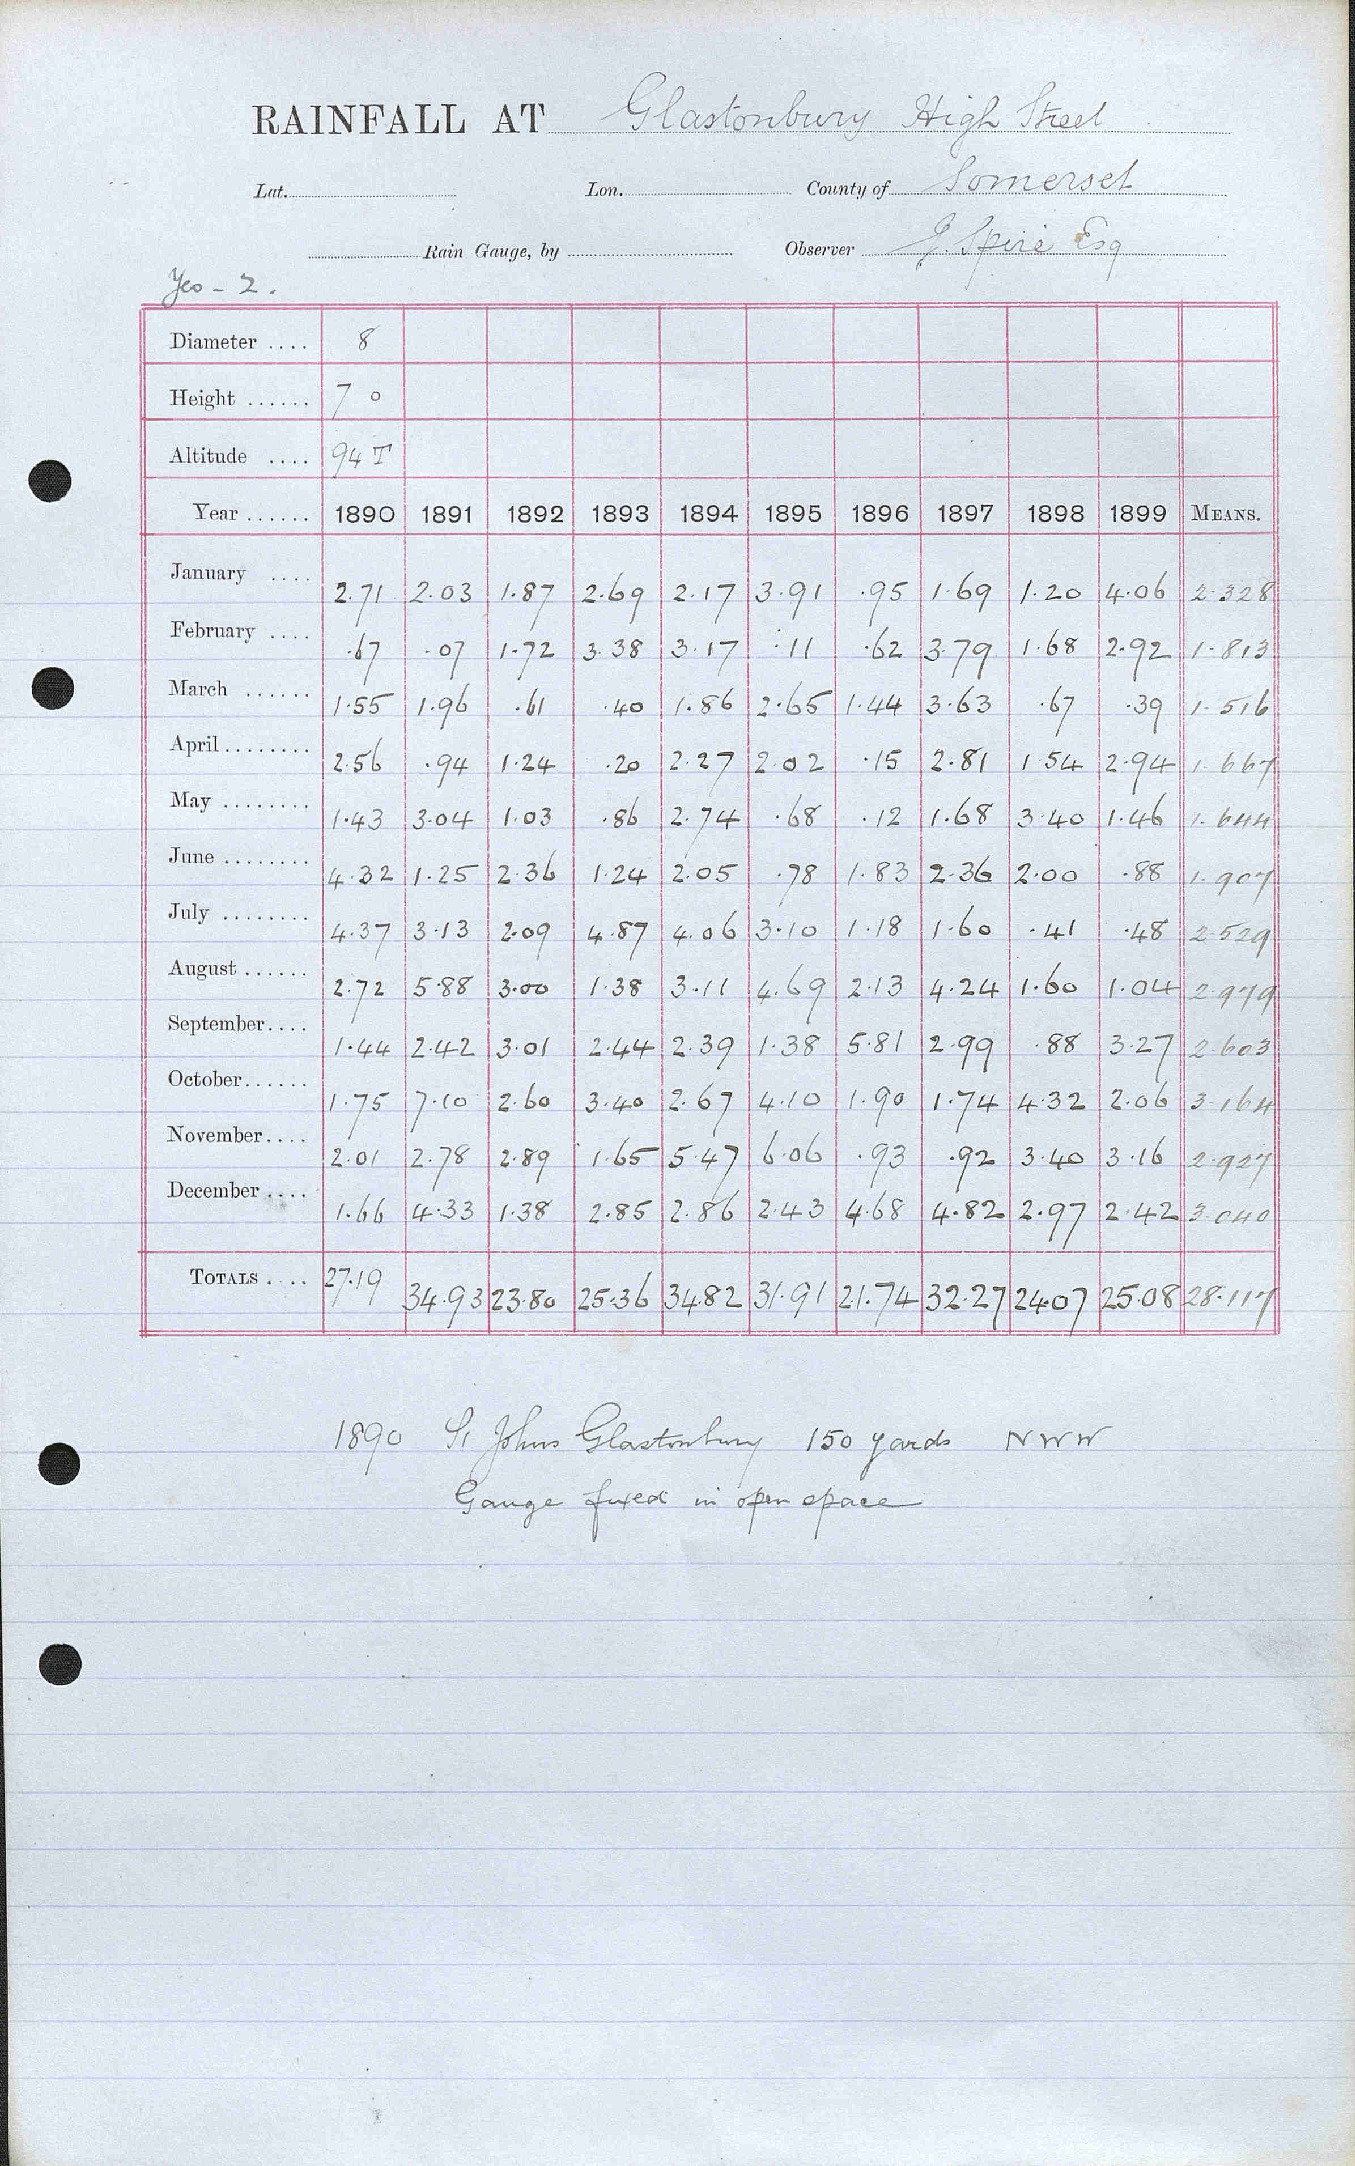 RAINFALL AT Glastonbury High Street
Lat. Lon. County of Somerset
Rain Gauge, by Observer J. Spire Esq
Yeo - 2.
Diameter .... 8
Height ...... 7 0
Altitude .... 94 T
Year ...... 1890 1891 1892 1893 1894 1895 1896 1897 1898 1899 MEANS.
January .... 2.71 2.03 1.87 2.69 2.17 3.91 .95 1.69 1.20 4.06 2.328
February .... .67 .07 1.72 3.38 3.17 .11 .62 3.79 1.68 2.92 1.813
March ...... 1.55 1.96 .61 .40 1.86 2.65 1.44 3.63 .67 .39 1.516
April ........ 2.56 .94 1.24 .20 2.27 2.02 .15 2.81 1.54 2.94 1.667
May ........ 1.43 3.04 1.03 .86 2.74 .68 .12 1.68 3.40 1.46 1.644
June ........ 4.32 1.25 2.36 1.24 2.05 .78 1.83 2.36 2.00 .88 1.907
July ........ 4.37 3.13 2.09 4.87 4.06 3.10 1.18 1.60 .41 .48 2.529
August ...... 2.72 5.88 3.00 1.38 3.11 4.69 2.13 4.24 1.60 1.04 2.979
September .... 1.44 2.42 3.01 2.44 2.39 1.38 5.81 2.99 .88 3.27 2.603
October ...... 1.75 7.10 2.60 3.40 2.67 4.10 1.90 1.74 4.32 2.06 3.164
November .... 2.01 2.78 2.89 1.65 5.47 6.06 .93 .92 3.40 3.16 2.927
December .... 1.66 4.33 1.38 2.85 2.86 2.43 4.68 4.82 2.97 2.42 3.040
TOTALS .... 27.19 34.93 23.80 25.36 34.82 31.91 21.74 32.27 24.07 25.08 28.117
1890 St Johns Glastonbury 150 yards NWW
Gauge fixed in open space